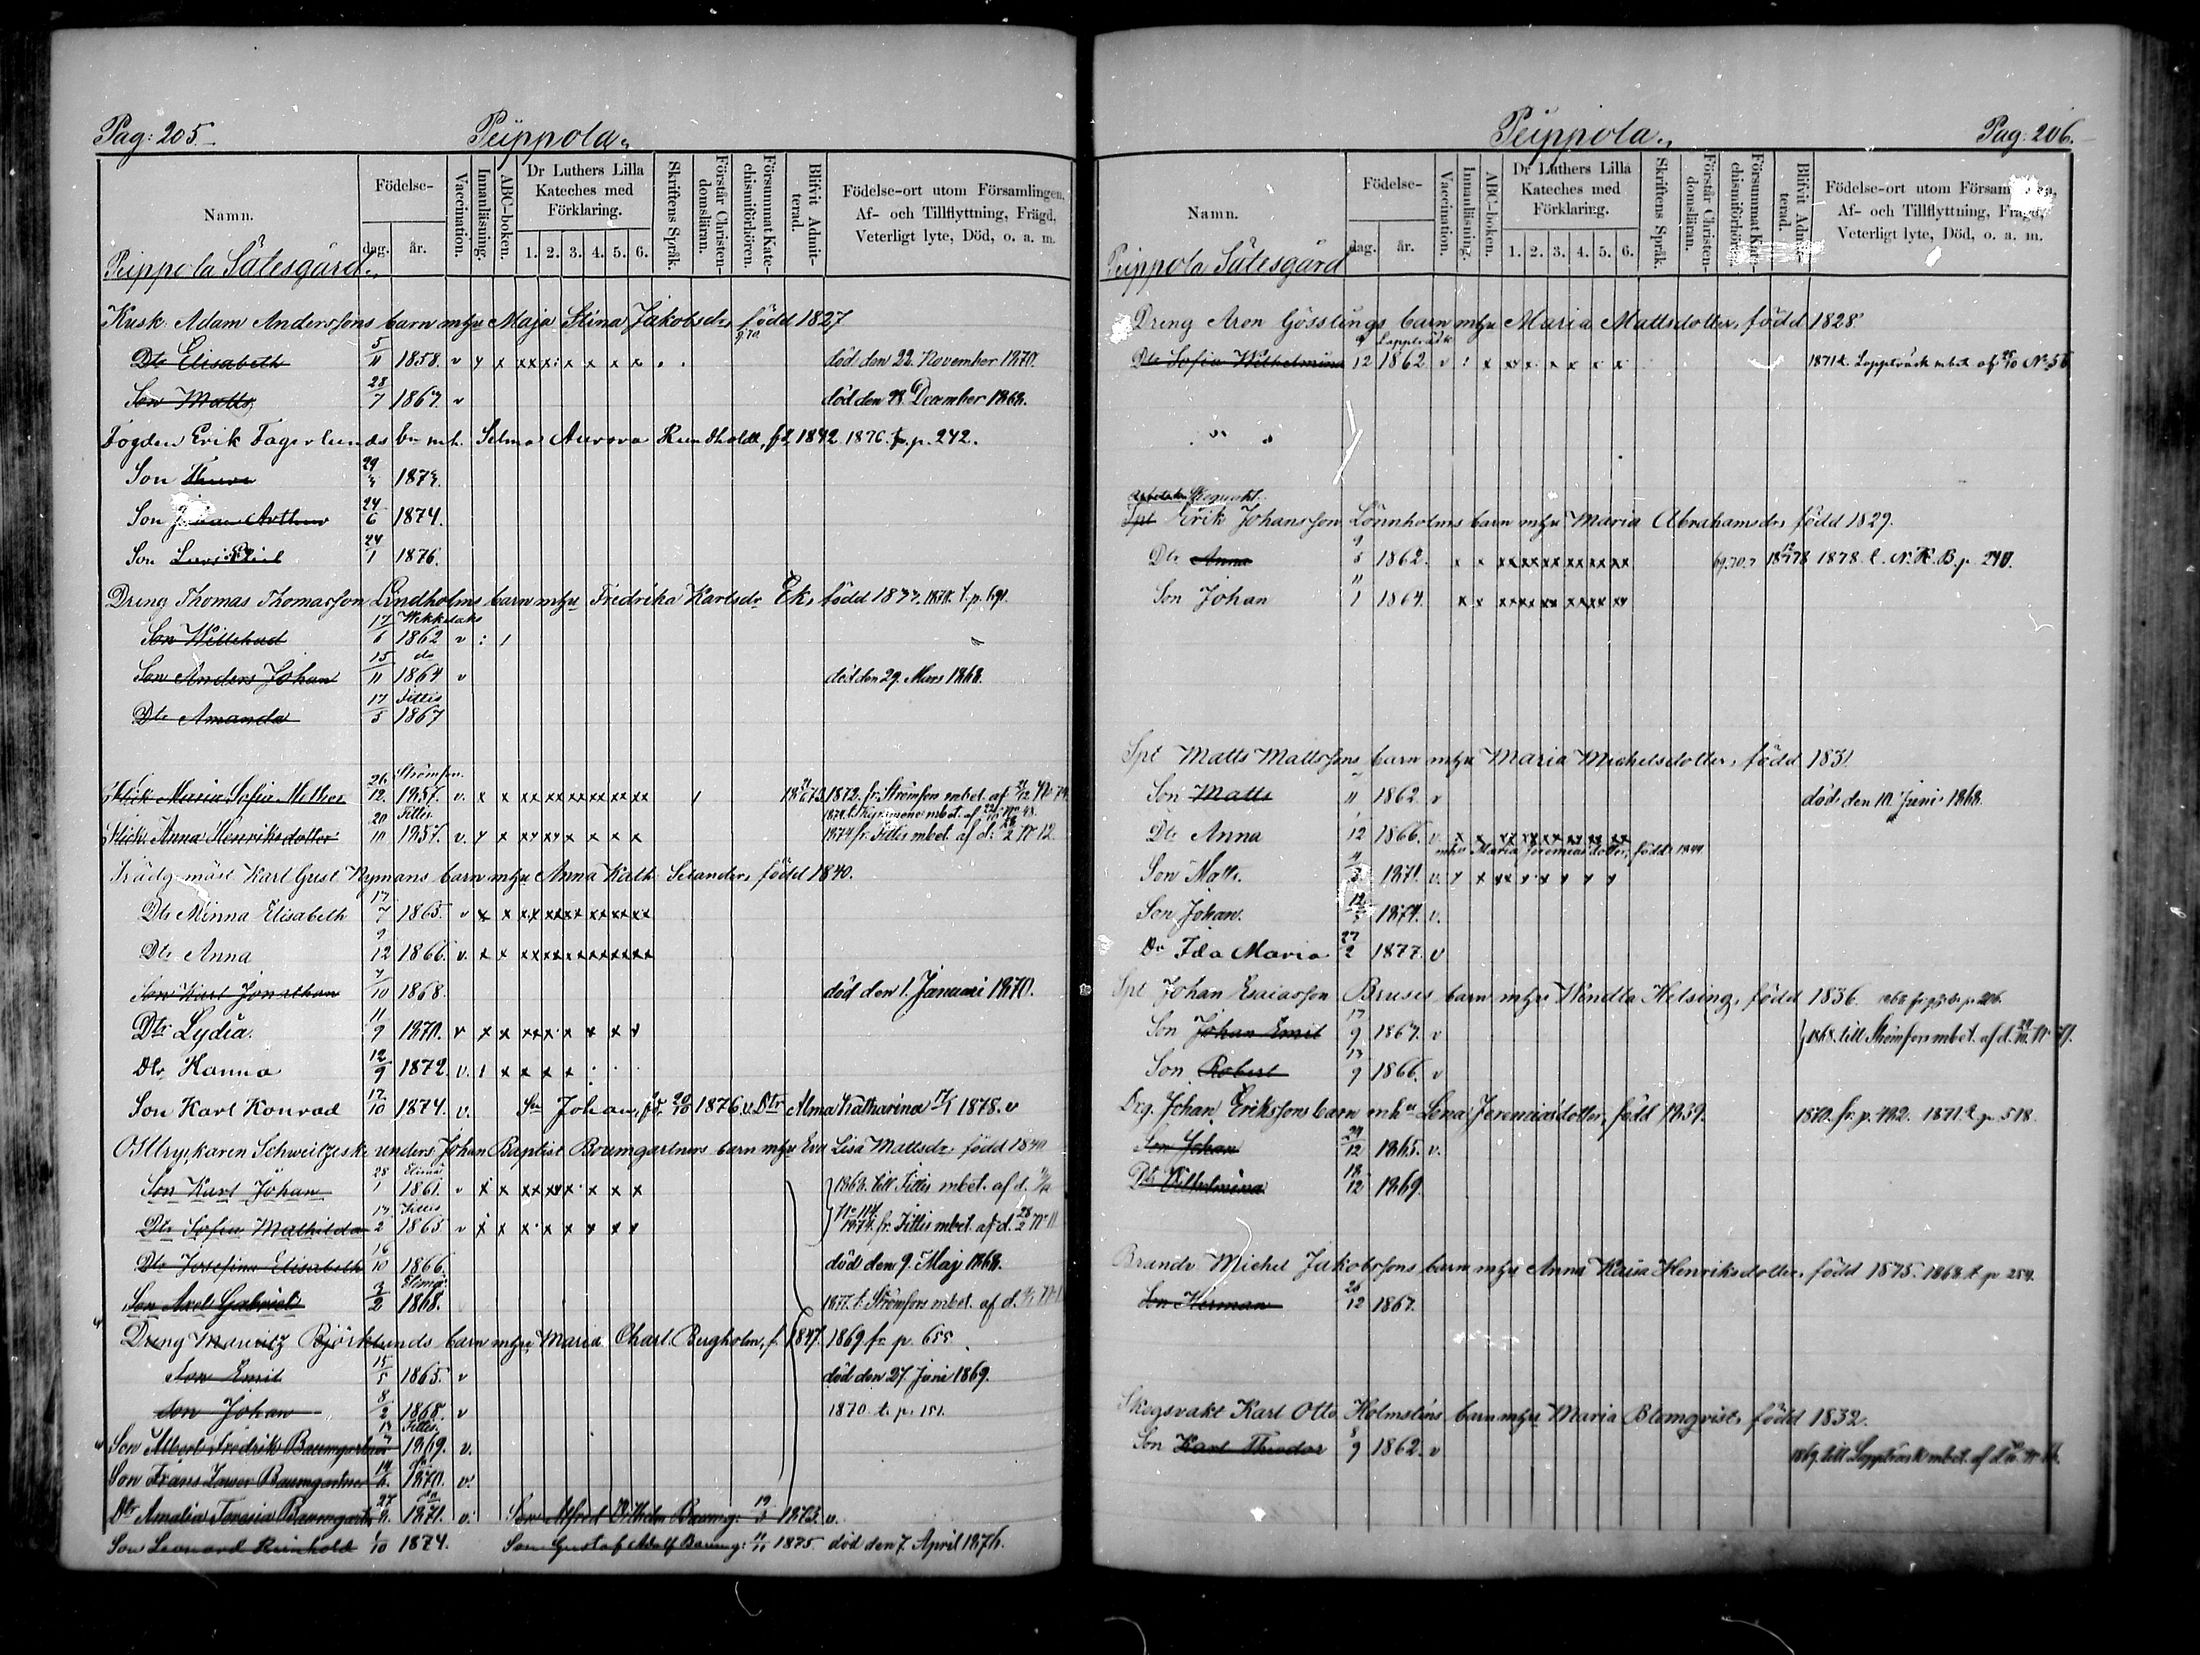 Pag: 205.
Peippola.
Namn.
Födelse-
dag.
år.
Vaccination.
Innanläsning.
ABC-boken.
Dr Luthers Lilla Kateches med Förklaring.
1. 2. 3. 4. 5. 6.
Skriftens Språk.
Förstår Christendomsläran.
Försummat Katechismiförhören.
Blifvit Admitterad.
Födelse-ort utom Församlingen,
Af- och Tillflyttning, Frägd,
Veterligt lyte, Död, o. a. m.
Peippola Sätesgård.
Kusk Adam Anderssons barn m hu Maja Stina Jakobsdr född 1827
Dtr Elisabeth 5/11 1858. v död den 22. November 1870.
Son Matts 28/7 1867. v död den 28 December 1868.
Fogden Erik Fagerlunds bn m h. Selma Aurora Rundholdt, fd 1842 1876. fr. p. 242.
Son Thure 29 1873.
Son Johan Arthur 24/6 1874.
Son 24/1 1876.
Dreng Thomas Thomasson Lindholms barn m hu Fredrika Karlsdr Ek, född 1833, 1870. t. p. 691.
Son Willehad 17/6 1862 v : 1
Son Anders Johan 15/11 do 1864 v död den 29. Mars 1868.
Dtr Amanda 17/5 Sittis 1867
Flick. Maria Sofia 26/12. Strömfors. 1857. v. 1872. fr. Strömfors mbet. af
Flick. Anna Henriksdotter 20/10 Sittis 1857. v. 1874 fr. Sittis mbet. af d. 28/2 No 12.
Trädg mäst Karl Gust Nymans barn m hu Anna Kath. Selander, född 1840.
Dtr Minna Elisabeth 17/7 1865. v
Dtr Anna 9/12 1866. v.
Son Karl Jonathan 7/10 1868. död den 1. Januari 1870.
Dtr Lydia. 11/9 1870. v
Dtr Hanna 12/9 1872. v.
Son Karl Konrad 17/10 1874. v. Sn Johan, fd. 20/10 1876. v. Dtr Alma Katharina 1878. v
Osttryckaren Schweitziske unders. Johan Baptist Baumgartners barn m hu Eva Lisa Mattsdr född 1840
Son Karl Johan 28/1 Elimä 1861. v 1868. till Sittis mbet. af d.
Dtr Sofia Mathilda 17/2 Sittis 1865 v 1874. fr. Sittis mbet. af d. 28/2 No 11
Dtr Josefina Elisabeth 16/10 1866. död den 9. Maj 1868.
Son Axel Gabriel 3/2 Elimä 1868. 1877. t. Strömfors mbet. af d.
Dreng Mauritz Björklunds barn m hu Maria Charl. Bergholm, f. 1847. 1869 fr p. 655.
Son Emil 15/5 1865. v död den 27. Juni 1869.
Son Johan 8/2 1868. v 1870. t. p. 151.
Son Albert Fredrik Baumgartner Sittis 1869. v.
Son Frans Xaver Baumgartner 1870. v.
Dtr Amalia Teresia Baumgartn 27/2. 1871. v. Son Alfred Vilhelm Baumg: 19/3 1873. v.
Son Leonard Reinhold 1/10 1874. Son Gustaf Adolf Baumg: 1875 död den 7. April 1876.
Peippola.
Pag: 206.
Namn.
Födelse-
dag.
år.
Vaccination.
Innanläsning.
ABC-boken.
Dr Luthers Lilla Kateches med Förklaring.
1. 2. 3. 4. 5. 6.
Skriftens Språk.
Förstår Christendomsläran.
Försummat Katechismiförhören.
Blifvit Admitterad.
Födelse-ort utom Församlingen,
Af- och Tillflyttning, Frägd,
Veterligt lyte, Död, o. a. m.
Peippola Sätesgård
Dreng Aron Gösslings barn m hu Maria Mattsdotter, född 1828.
Dtr Sofia Wilhelmina 9/12 Lappträsk 1862 v 1871 t. Lappträsk mbet. af 25/10 No 56
Skogsvakt.
Spt Erik Johansson Lönnholms barn m hu Maria Abrahamsdr född 1829.
Dtr Anna 9/5 1862. 69.70. 1878 1878. t. N. K. B. p. 240.
Son Johan 11/1 1864.
Spt Matts Mattssons barn m hu Maria Michelsdotter, född 1831
Son Matts 11 1862. v död den 10. Juni 1868.
Dtr Anna 1/12 1866. v
m hu Maria Jeremiasdotter, född 1844
Son Matts. 4/3 1871. v.
Son Johan. 12 1874. v.
Dr Ida Maria 27/2 1877. v
Spt Johan Esaiasson Bruses barn m hu Wendla Helsing, född 1836.
Son Johan Emil 17/9 1867. v 1868. till Strömfors mbet. af d.
Son Robert 13/9 1866. v
Drg. Johan Erikssons barn m hu Lena Jeremiasdotter, född 1839. 1870. fr. p. 482. 1871 t. p. 518.
Son Johan 24/12 1865. v.
Dtr Vilhelmina 18/12 1869.
Brandv Michel Jakobssons barn m hu Anna Kaisa Henriksdotter, född 1875. 1868. t. p. 254.
Son Herman 20/12 1867.
Skogsvakt Karl Otto Holmsténs barn m hu Maria Blomqvist, född 1832.
Son Karl Theodor 8/9 1862. v 1869. till Lappträsk mbet. af d.